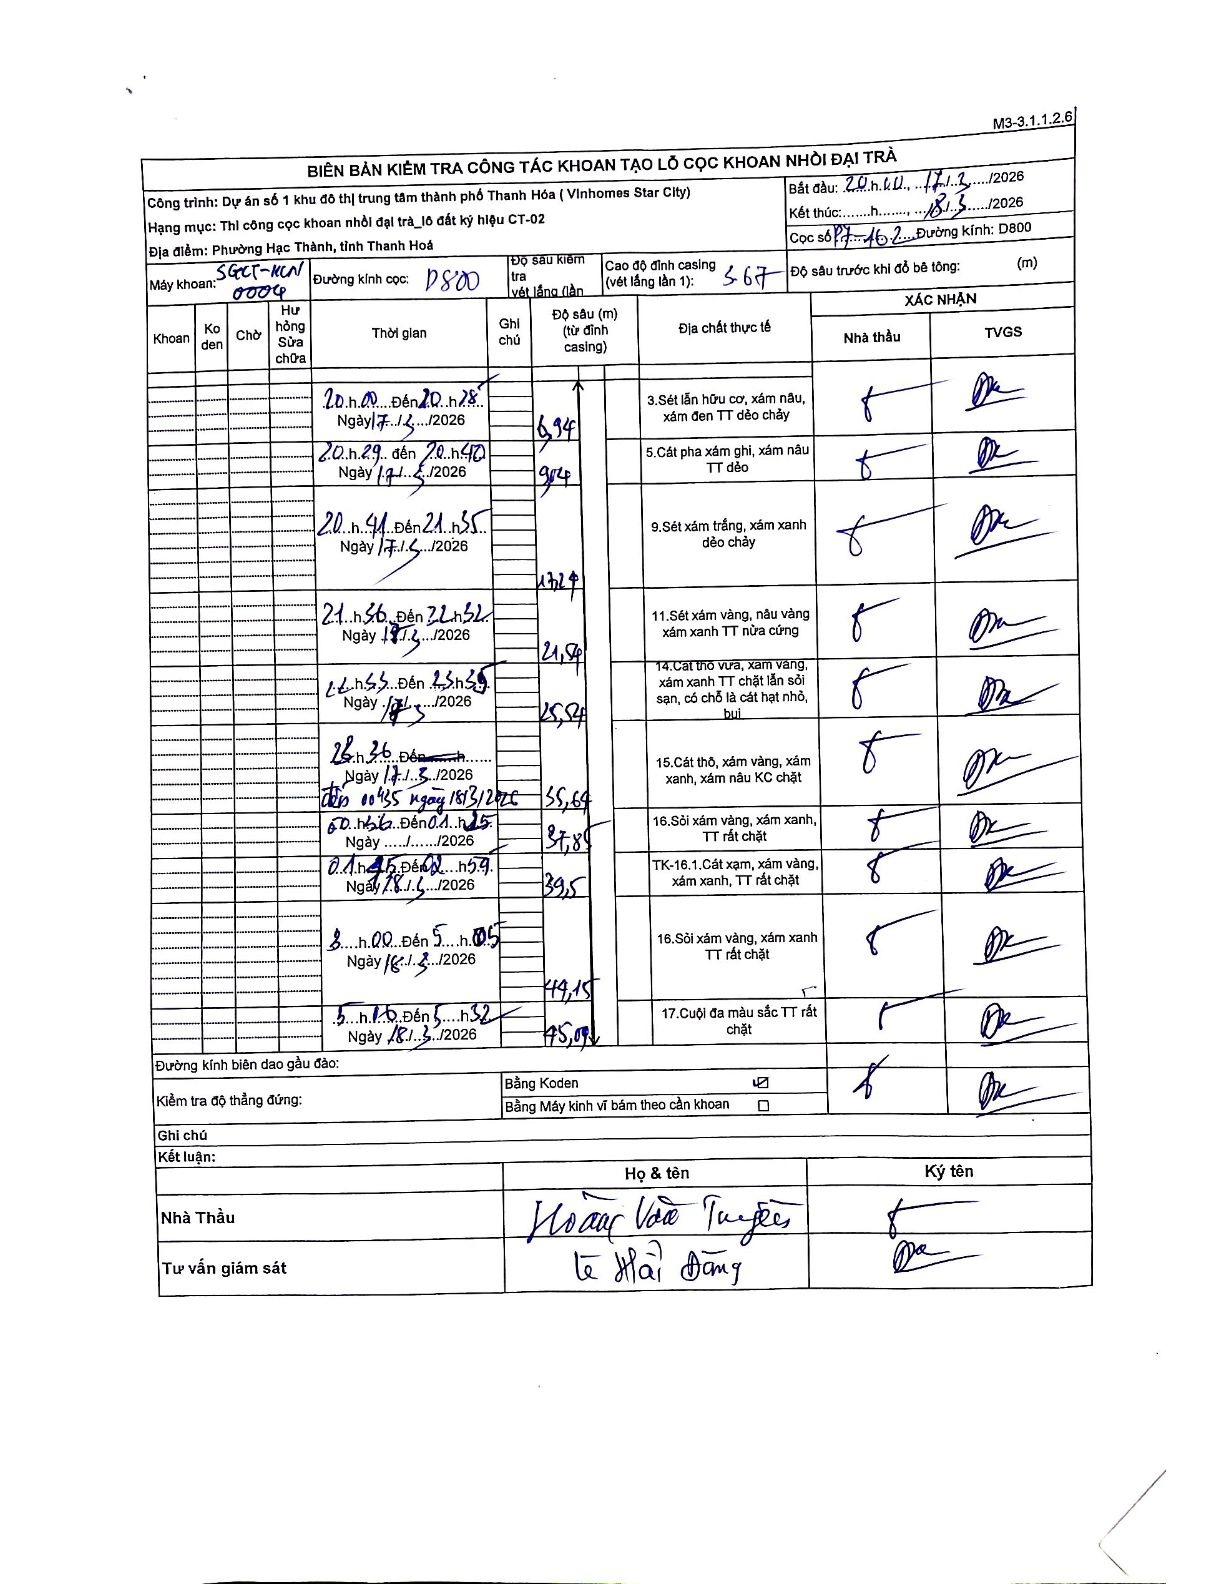 M3-3.1.1.2.6
BIÊN BẢN KIỂM TRA CÔNG TÁC KHOAN TẠO LỖ CỌC KHOAN NHỒI ĐẠI TRÀ
Công trình: Dự án số 1 khu đô thị trung tâm thành phố Thanh Hóa ( Vinhomes Star City)
Hạng mục: Thi công cọc khoan nhồi đại trà_lô đất ký hiệu CT-02
Địa điểm: Phường Hạc Thành, tỉnh Thanh Hoá
Bắt đầu: 20.h.00., ..17./..3...../2026
Kết thúc:.......h......., ...18./.3...../2026
Cọc số P7-162...Đường kính: D800
Máy khoan: SGCT-KCN 0004
Đường kính cọc: D800
Độ sâu kiểm tra
vét lắng (lần
Cao độ đỉnh casing
(vét lắng lần 1): 3.67
Độ sâu trước khi đổ bê tông: (m)
Khoan
Ko den
Chờ
Hư hỏng Sửa chữa
Thời gian
Ghi chú
Độ sâu (m) (từ đỉnh casing)
Địa chất thực tế
XÁC NHẬN
Nhà thầu
TVGS
20.h.00....Đến 20..h28.
Ngày 17../.3..../2026
6,94
3.Sét lẫn hữu cơ, xám nâu,
xám đen TT dẻo chảy
20.h.29.. đến 20..h40
Ngày 17./..3../2026
9,04
5.Cát pha xám ghi, xám nâu
TT dẻo
20..h.41..Đến 21..h35..
Ngày 17../.3.../2026
17,24
9.Sét xám trắng, xám xanh
dẻo chảy
21..h36..Đến 22..h32.
Ngày 17./.3..../2026
21,54
11.Sét xám vàng, nâu vàng
xám xanh TT nửa cứng
22.h33...Đến .23.h35.
Ngày .17/..3..../2026
25,54
14.Cát thô vừa, xám vàng,
xám xanh TT chặt lẫn sỏi
sạn, có chỗ là cát hạt nhỏ,
bụi
23.h.36...Đến....h......
Ngày .17./..3../2026
đến 00h35 ngày 18/3/2026
35,64
15.Cát thô, xám vàng, xám
xanh, xám nâu KC chặt
00..h36...Đến 01..h.15.
Ngày ...../....../2026
37,85
16.Sỏi xám vàng, xám xanh,
TT rất chặt
01.h.15.Đến 02....h59.
Ngày 18./.3.../2026
39,5
TK-16.1.Cát xạm, xám vàng,
xám xanh, TT rất chặt
3....h.00...Đến 5....h.05
Ngày 18./..3../2026
44,15
16.Sỏi xám vàng, xám xanh
TT rất chặt
.5...h.06..Đến 5....h.32
Ngày ./18./..3./2026
45,09
17.Cuội đa màu sắc TT rất
chặt
Đường kính biên dao gầu đào:
Kiểm tra độ thẳng đứng:
Bằng Koden ☑
Bằng Máy kinh vĩ bám theo cần khoan ☐
Ghi chú
Kết luận:
Họ & tên
Ký tên
Nhà Thầu
Hoàng Văn Tuyên
Tư vấn giám sát
Lê Hải Đăng